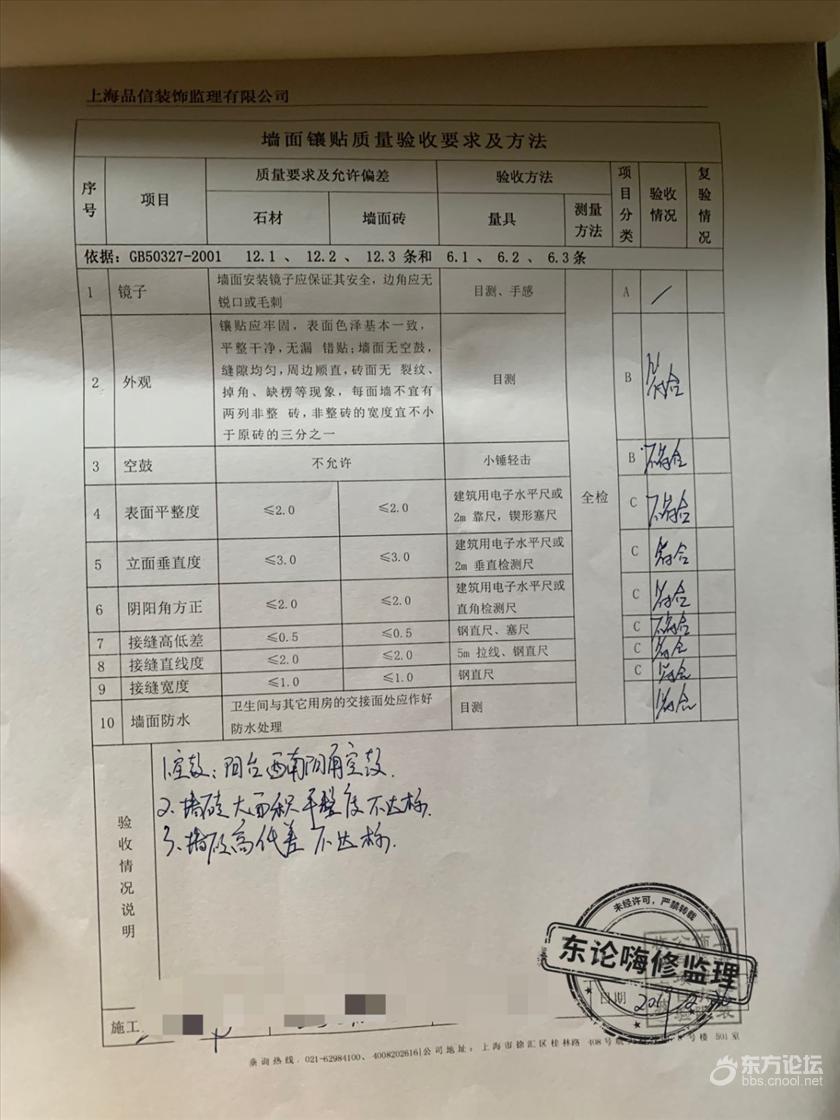 上海品信装饰监理有限公司
墙面镶贴质量验收要求及方法
序号 项目 质量要求及允许偏差 验收方法 项目分类 验收情况 复验情况
石材 墙面砖 量具 测量方法
依据：GB50327-2001 12.1 、 12.2 、 12.3 条和 6.1 、 6.2 、 6.3 条
1 镜子 墙面安装镜子应保证其安全，边角应无 目测、手感 A /
锐口或毛刺
镶贴应牢固，表面色泽基本一致，
平整干净，无漏 错贴；墙面无空鼓，
缝隙均匀，周边顺直，砖面无 裂纹、
2 外观 掉角、缺楞等现象，每面墙不宜有 目测 B 符合
两列非整 砖，非整砖的宽度宜不小
于原砖的三分之一
3 空鼓 不允许 小锤轻击 B 不符合
全检
4 表面平整度 ≤2.0 ≤2.0 建筑用电子水平尺或 C 不符合
2m 靠尺，锲形塞尺
5 立面垂直度 ≤3.0 ≤3.0 建筑用电子水平尺或 C 符合
2m 垂直检测尺
6 阴阳角方正 ≤2.0 ≤2.0 建筑用电子水平尺或 C 符合
直角检测尺
7 接缝高低差 ≤0.5 ≤0.5 钢直尺、塞尺 C 不符合
8 接缝直线度 ≤2.0 ≤2.0 5m 拉线、钢直尺 C 符合
9 接缝宽度 ≤1.0 ≤1.0 钢直尺 C 符合
10 墙面防水 卫生间与其它用房的交接面处应作好 目测 符合
防水处理
验收情况说明
1.空鼓：阳台西南阴角空鼓.
2、墙砖大面积平整度不达标.
3、墙砖高低差不达标.
未经许可，严禁转载
东论嗨修监理
日期
施工
垂询热线：021-62984100、4008202616|公司地址：上海市徐汇区桂林路 408号 号楼 501室
东方论坛
bbs.cnool.net